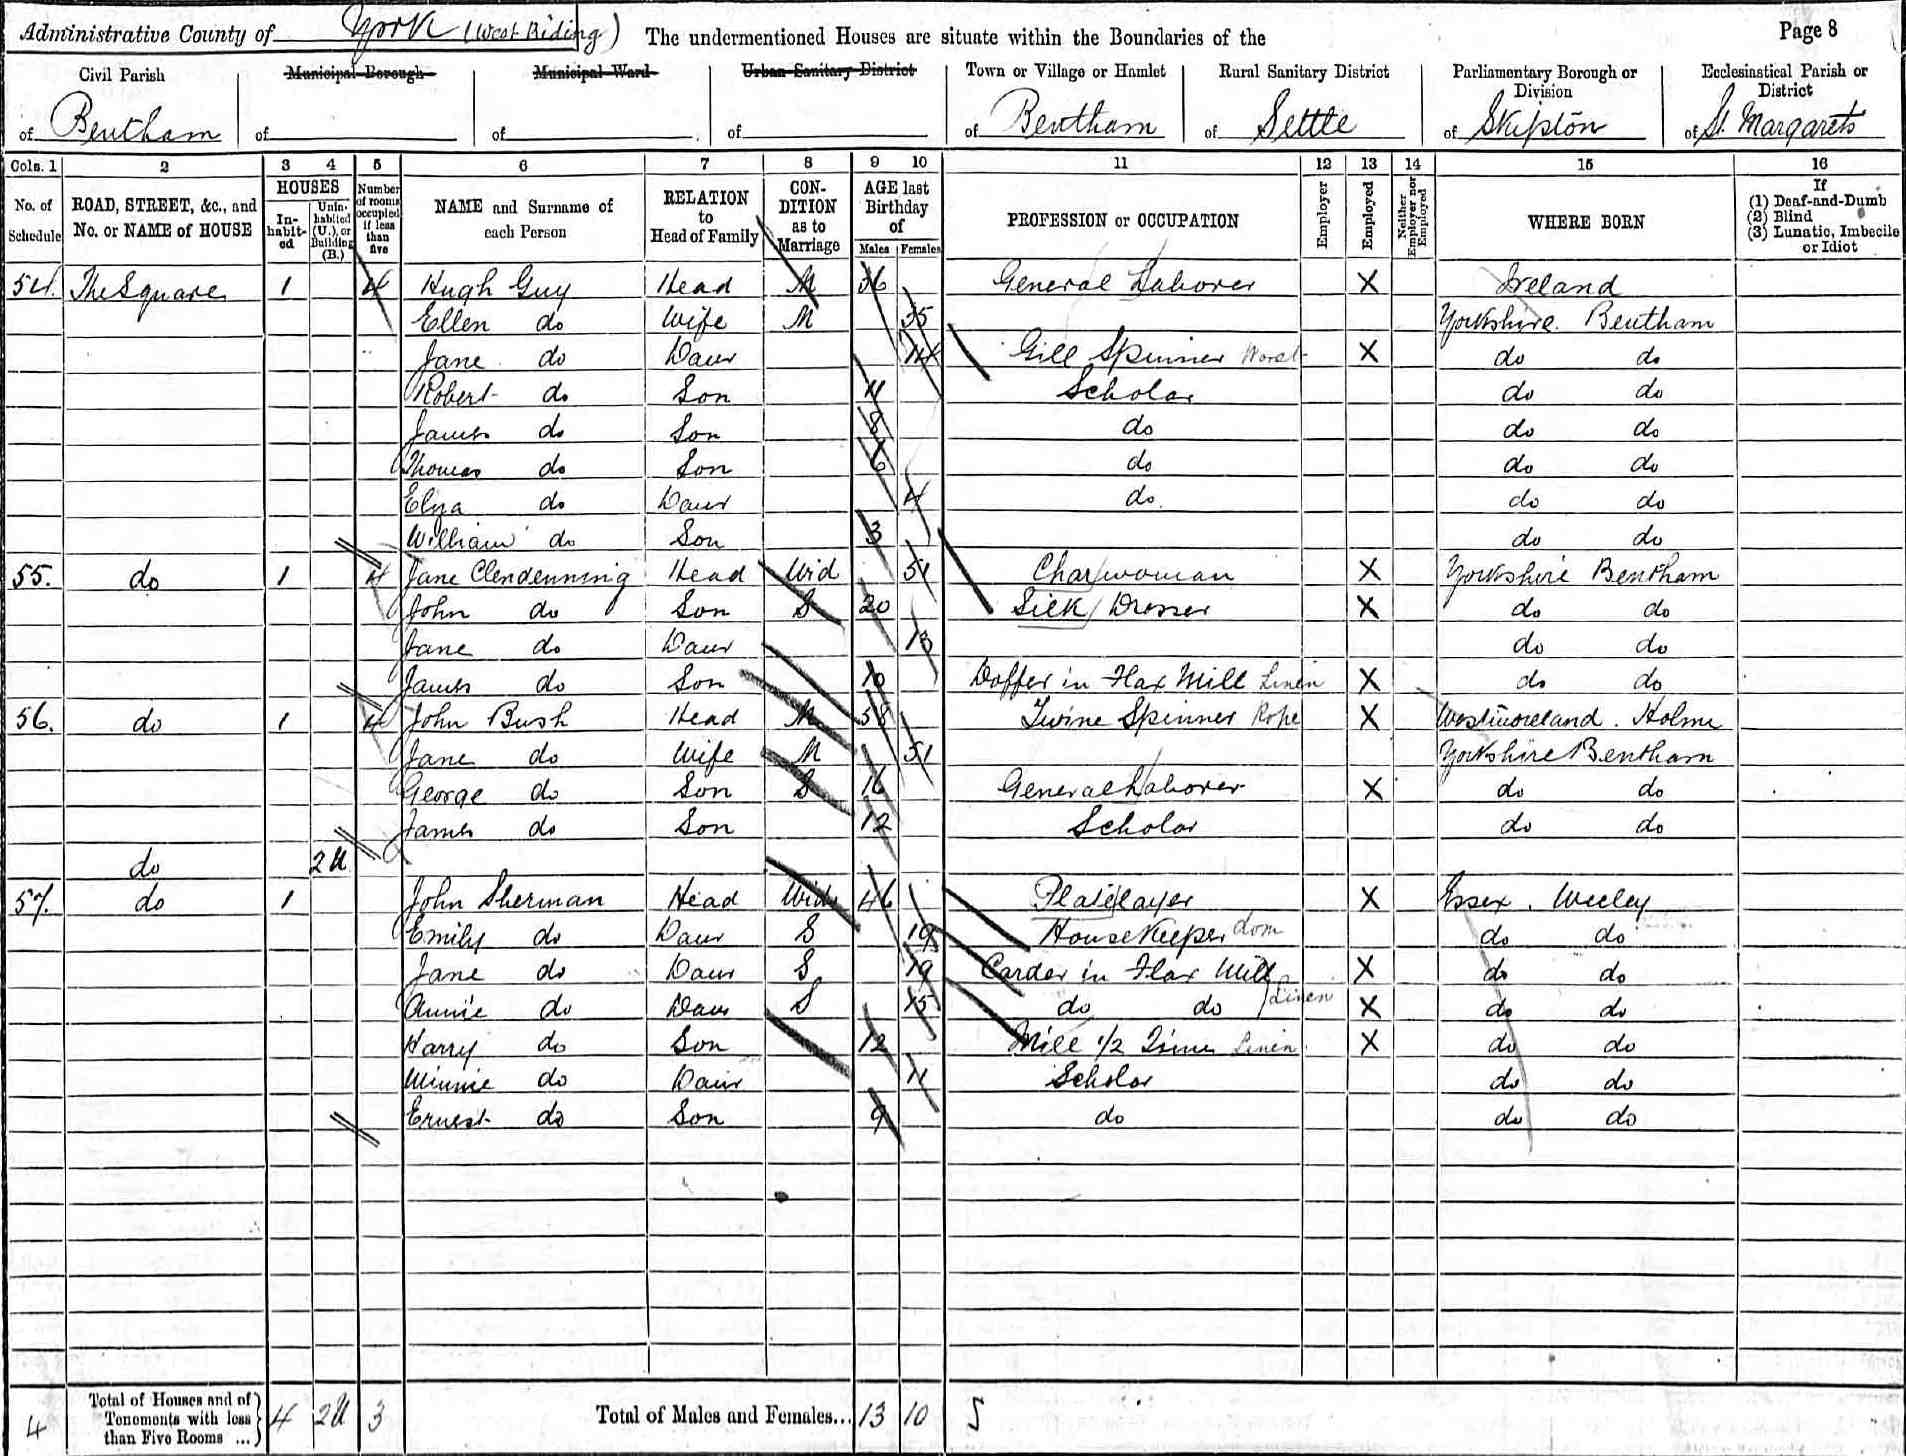 Administrative County of York (West Riding) The undermentioned Houses are situate within the Boundaries of the Page 8
Civil Parish Municipal Borough Municipal Ward Urban Sanitary District Town or Village or Hamlet Rural Sanitary District Parliamentary Borough or Division Ecclesiastical Parish or District
of Bentham of of of of Bentham of Settle of Skipton of St. Margarets
Cols. 1 2 3 4 5 6 7 8 9 10 11 12 13 14 15 16
No. of Schedule ROAD, STREET, &c., and No. or NAME of HOUSE HOUSES Inhabited Uninhabited (U.), or Building (B.) Number of rooms occupied if less than five NAME and Surname of each Person RELATION to Head of Family CONDITION as to Marriage AGE last Birthday of Males Females PROFESSION or OCCUPATION Employer Employed Neither Employer nor Employed WHERE BORN If (1) Deaf-and-Dumb (2) Blind (3) Lunatic, Imbecile or Idiot
54. The Square 1 4 Hugh Guy Head M 36 General Laborer X Ireland
Ellen do Wife M 35 Yorkshire. Bentham
Jane do Daur 14 Gill Spinner Worst X do do
Robert do Son 11 Scholar do do
James do Son 8 do do do
Thomas do Son 6 do do do
Elza do Daur 4 do do do
William do Son 3 do do
55. do 1 4 Jane Clendenning Head Wid 51 Charwoman X Yorkshire Bentham
John do Son S 20 Silk Dresser X do do
Jane do Daur 13 do do
James do Son 10 Doffer in Flax Mill Linen X do do
56. do 1 4 John Bush Head M 58 Twine Spinner Rope X Westmoreland. Holme
Jane do Wife M 51 Yorkshire Bentham
George do Son S 16 General Laborer X do do
James do Son 12 Scholar do do
do 2 U
57. do 1 John Sherman Head Widr 46 Platelayer X Essex. Weeley
Emily do Daur S 19 Housekeeper dom do do
Jane do Daur S 19 Carder in Flax Mill X do do
Annie do Daur S 15 do do Linen X do do
Harry do Son 12 Mill 1/2 Time Linen X do do
Minnie do Daur 11 Scholar do do
Ernest do Son 9 do do do
4 Total of Houses and of Tenements with less than Five Rooms ... 4 2U 3 Total of Males and Females... 13 10 5